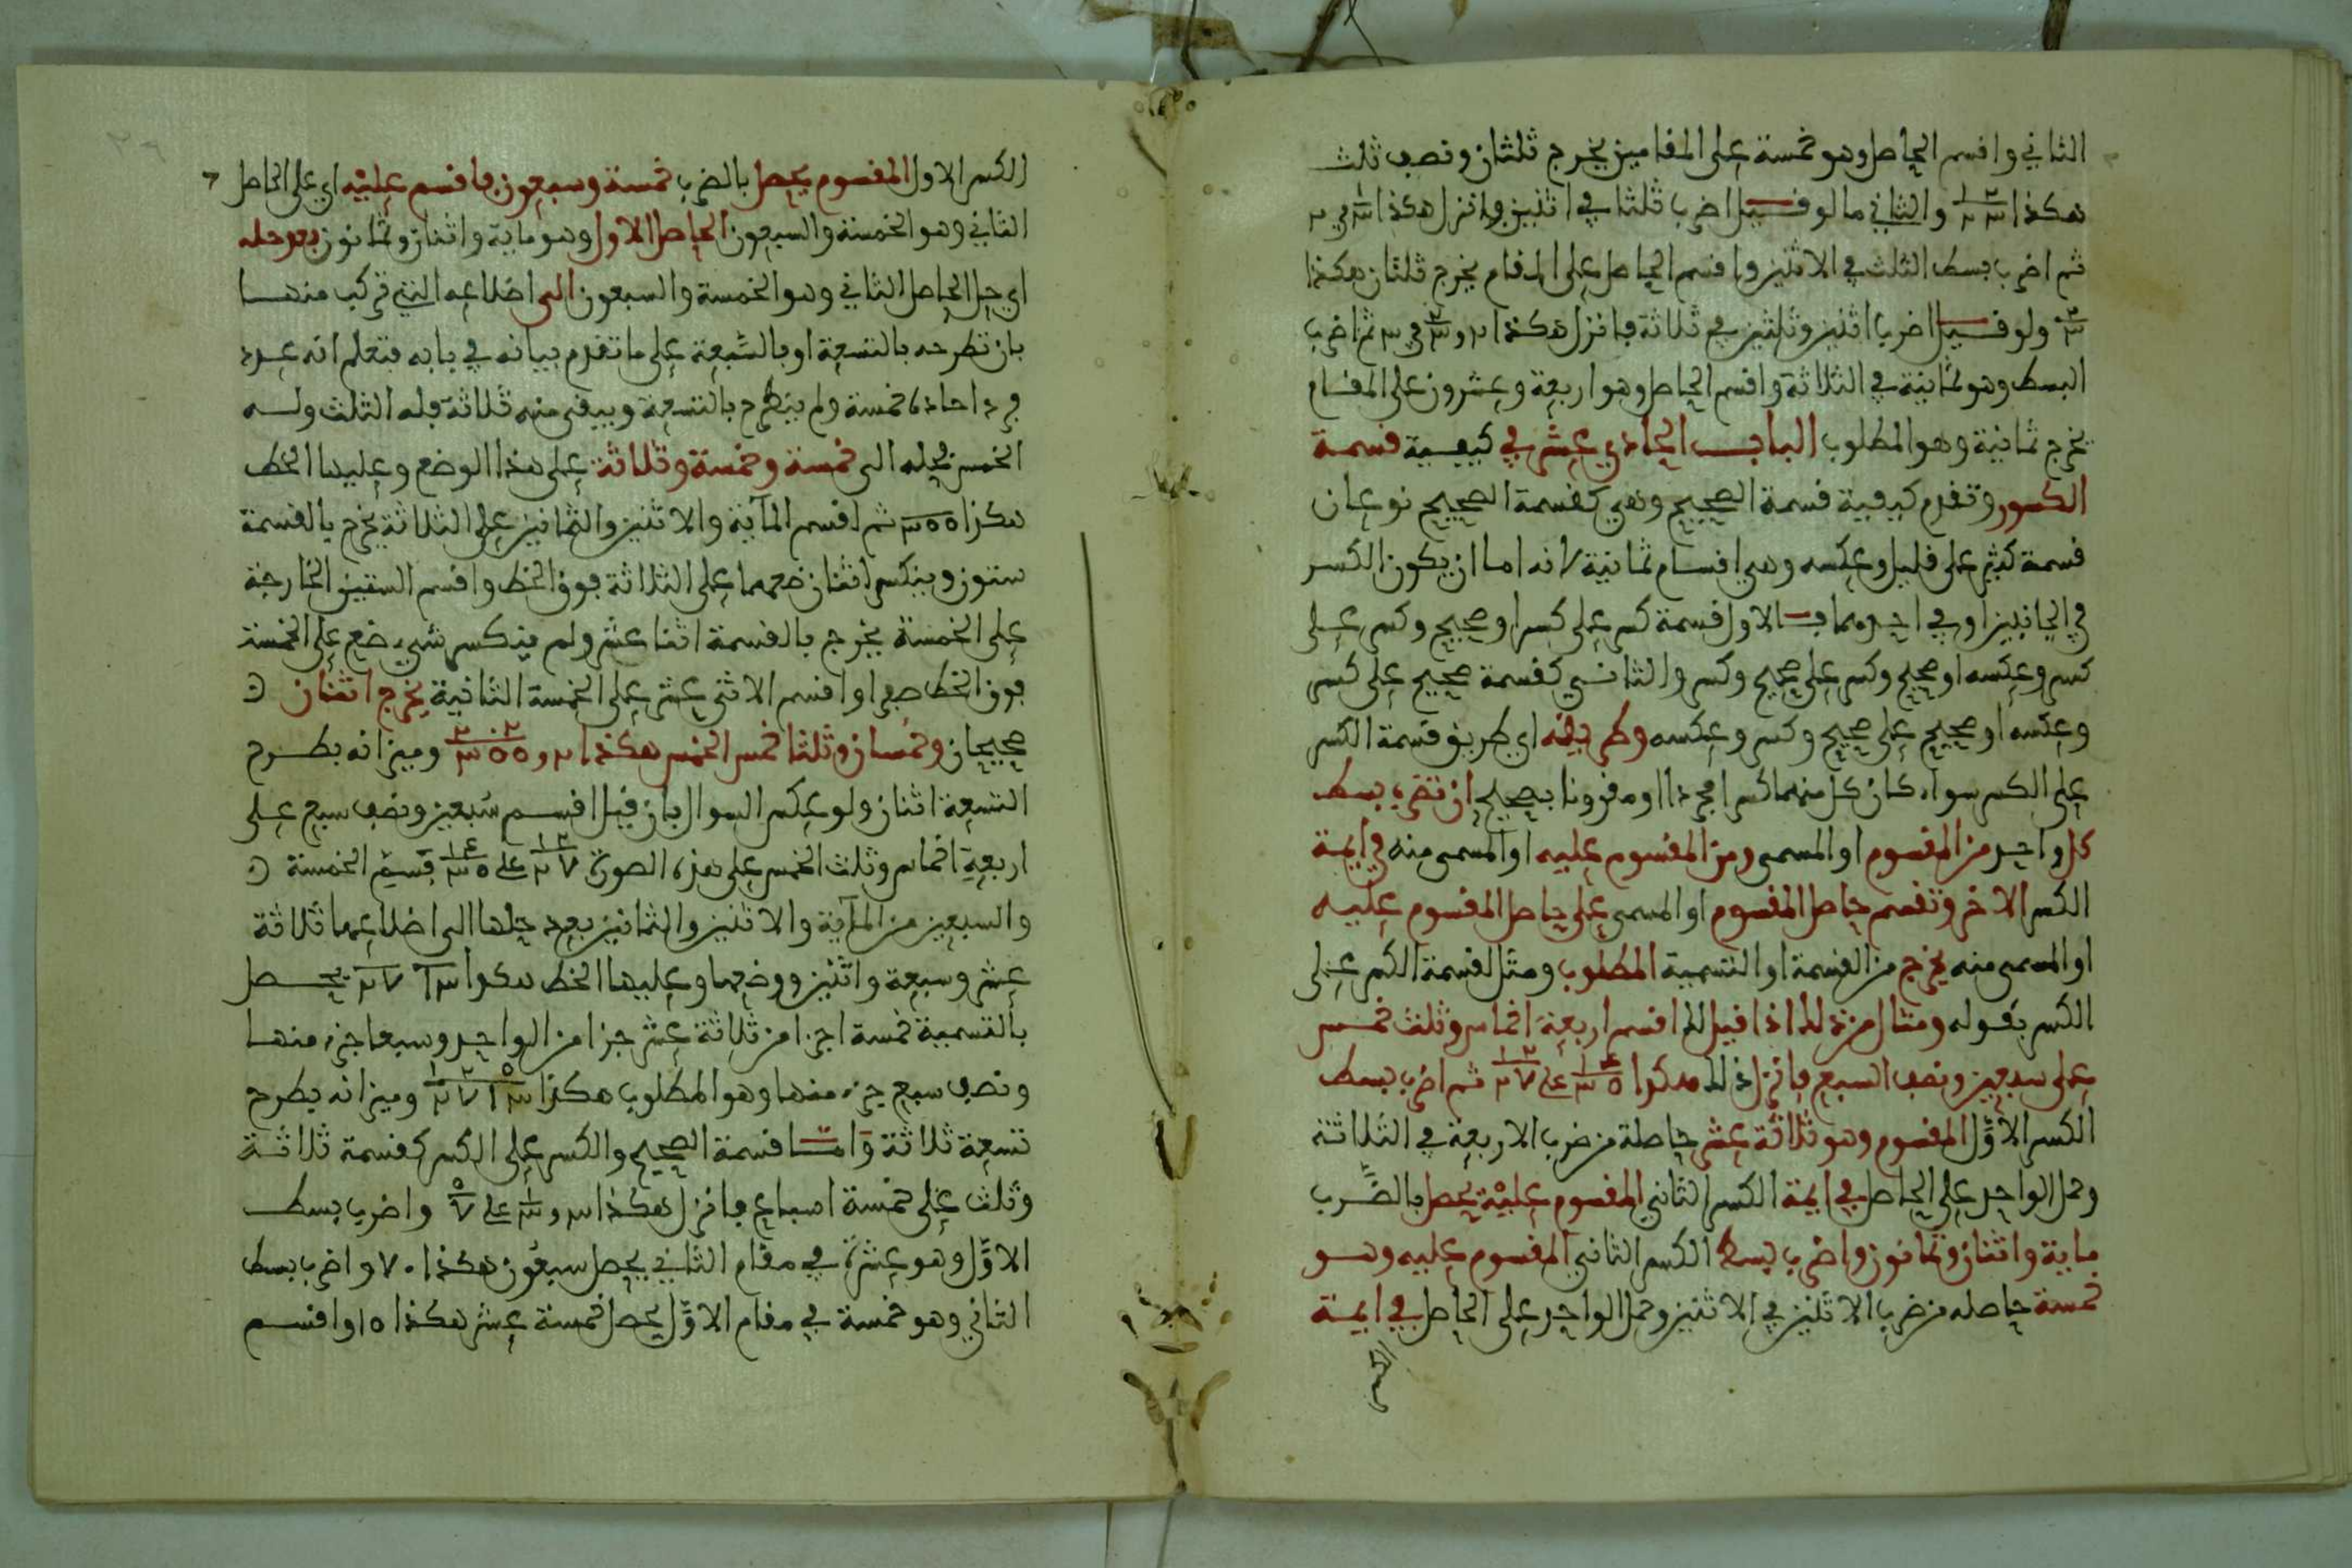 الثاني واقسم الحاصل وهو خمسة على المقامين يخرج ثلثان ونصف ثلث
هكذا ٢ ١ / ٣ ٢ والثاني ما لو قيل اضرب ثلثا في اثنين فانزل هكذا ١/٣ في ٢
ثم اضرب بسط الثلث في الاثنين واقسم الحاصل على المقام يخرج ثلثان هكذا
٢/٣ ولو قيل اضرب اثنين وثلثين في ثلاثة فانزل هكذا ٢ و ٢/٣ في ٣ ثم اضرب
البسط وهو ثمانية في الثلاثة واقسم الحاصل وهو اربعة وعشرون على المقام
يخرج ثمانية وهو المطلوب الباب الحادي عشر في كيفية قسمة
الكسور وتقدم كيفية قسمة الصحيح وهي كقسمة الصحيح نوعان
قسمة كثير على قليل وعكسه وهي اقسام ثمانية لانه اما ان يكون الكسر
في الجانبين او في احدهما فالاول قسمة كسر على كسر او صحيح وكسر على
كسر وعكسه او صحيح وكسر على صحيح وكسر والثاني كقسمة صحيح على كسر
وعكسه او صحيح على صحيح وكسر وعكسه وطريقه اي طريق قسمة الكسر
على الكسر سواء كان كل منهما كسرا مجردا او مقرونا بصحيح ان تضرب بسط
كل واحد من المقسوم او المسمى ومن المقسوم عليه او المسمى منه في ايمة
الكسر الاخر وتقسم حاصل المقسوم او المسمى على حاصل المقسوم عليه
او المسمى منه يخرج من القسمة او التسمية المطلوب ومثل لقسمة الكسر على
الكسر بقوله ومثال من ذلك اذا قيل لك اقسم اربعة اخماس وثلث خمس
على سبعين ونصف السبع فانزل ذلك هكذا ٤ ١ / ٥ ٣ على ٢ ١ / ٧ ٢ ثم اضرب بسط
الكسر الاوّل المقسوم وهو ثلاثة عشر حاصلة من ضرب الاربعة في الثلاثة
وحمل الواحد على الحاصل في ايمة الكسر الثاني المقسوم عليه يحصل بالضّرب
ماية واثنان وثمانون واضرب بسط الكسر الثاني المقسوم عليه وهو
خمسة حاصله من ضرب الاثنين في الاثنين وحمل الواحد على الحاصل في ايمة
الكسر
الكسر الاول المقسوم يحصل بالضرب خمسة وسبعون فاقسم عليه اي على الحاصل
الثاني وهو الخمسة والسبعون الحاصل الاول وهو ماية واثنان وثمانون بعد حله
اي حل الحاصل الثاني وهو الخمسة والسبعون الى اضلاعه التي تركب منها
بان تطرحه بالتسعة او بالسّبعة على ما تقدم بيانه في بابه فتعلم انه عدد
فرد احاده خمسة ولم ينطرح بالتسعة ويبقى منه ثلاثة فله الثلث وله
الخمس فحله الى خمسة وخمسة وثلاثة على هذا الوضع وعليها الخط
هكذا ٣ ٥ ٥ ثم اقسم الماية والاثنين والثمانين على الثلاثة يخرج بالقسمة
ستون وينكسر اثنان ضعهما على الثلاثة فوق الخط واقسم الستين الخارجة
على الخمسة يخرج بالقسمة اثنا عشر ولم ينكسر شيء ضع على الخمسة
فوق الخط صفرا واقسم الاثني عشر على الخمسة الثانية يخرج اثنان
صحيحان وخمسان وثلثا خمس الخمس هكذا ٢ و ٢ ٠ ٢ / ٥ ٥ ٣ وميزانه بطرح
التسعة اثنان ولو عكس السوال بان قيل اقسم سبعين ونصف سبع على
اربعة اخماس وثلث الخمس على هذه الصورة ٢ ١ / ٧ ٢ على ٤ ١ / ٥ ٣ فسمّ الخمسة
والسبعين من الماية والاثنين والثمانين بعد حلها الى اضلاعها ثلاثة
عشر وسبعة واثنين ووضعها وعليها الخط هكذا ١٣ ٧ ٢ يحصل
بالتسمية خمسة اجزا من ثلاثة عشر جزا من الواحد وسبعا جزء منها
ونصف سبع جزء منها وهو المطلوب هكذا ٥ ٢ ١ / ١٣ ٧ ٢ وميزانه بطرح
تسعة ثلاثة وامّا قسمة الصحيح والكسر على الكسر كقسمة ثلاثة
وثلث على خمسة اسباع فانزل هكذا ٣ و ١/٣ على ٥/٧ واضرب بسط
الاوّل وهو عشرة في مقام الثاني يحصل سبعون هكذا ٧٠ واضرب بسط
الثاني وهو خمسة في مقام الاوّل يحصل خمسة عشر هكذا ١٥ واقسم